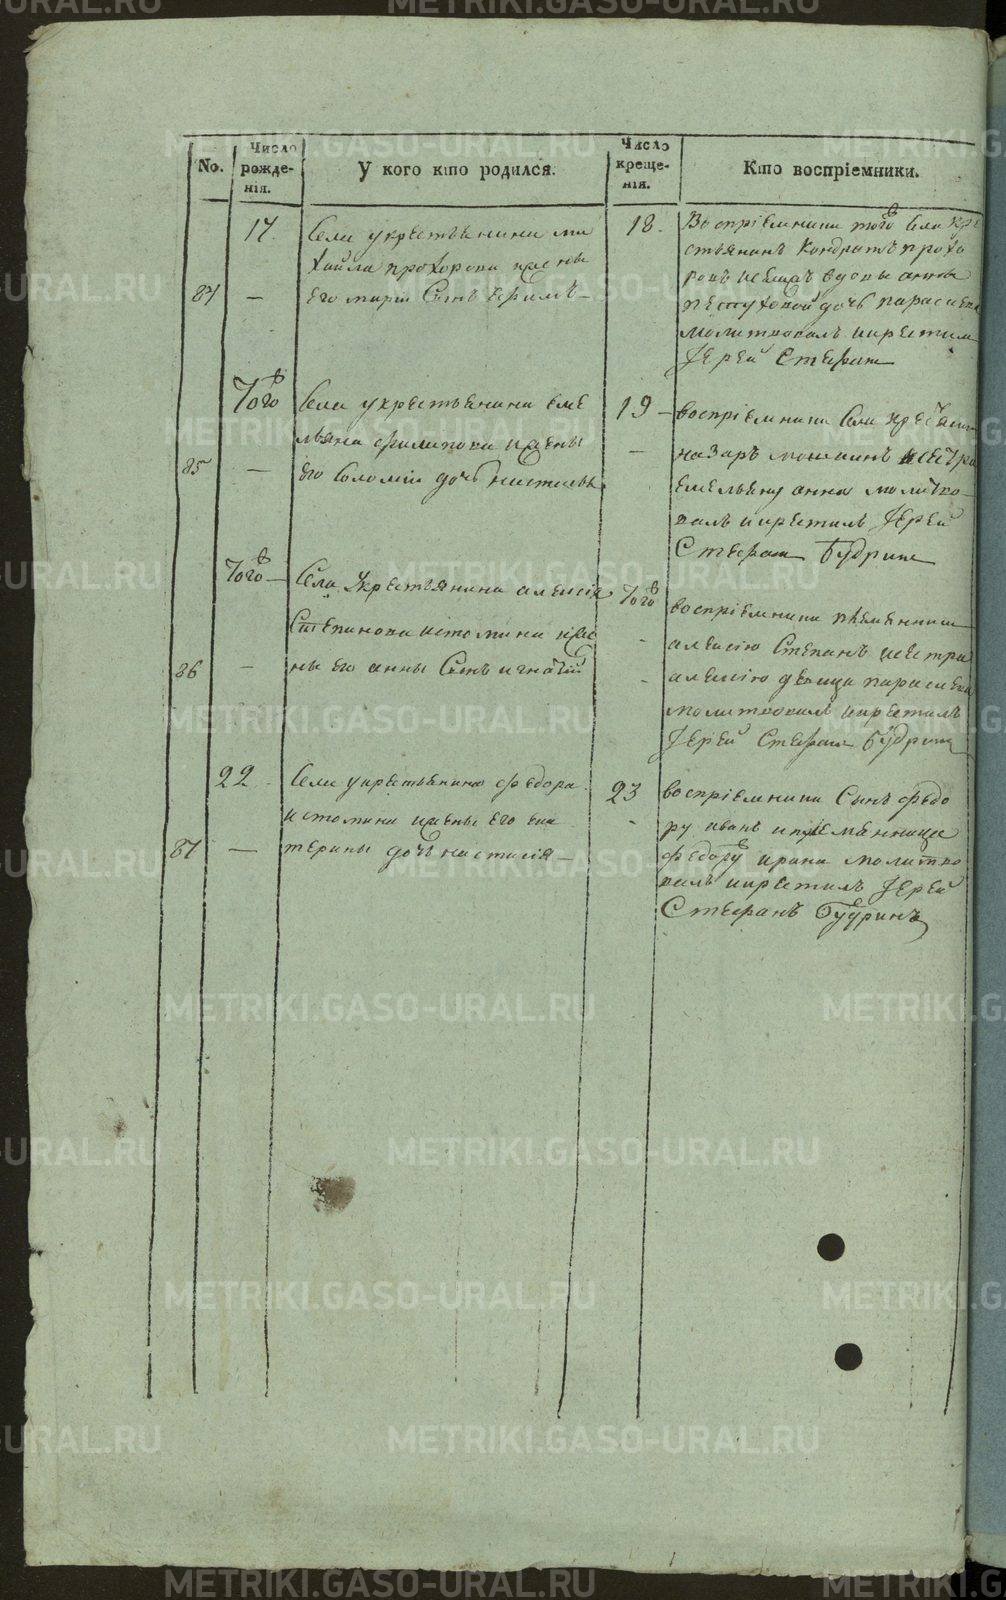 No.
Число рожде-нія.
У кого кто родился.
Число креще-нія.
Кто воспріемники.
17.
Села у крестьянина ми
хайла прохорова и жены
84 —
его маріи Сынъ ефимъ —
18.
Воспріемники того Села кре
стьянинъ Кондратъ прохо
ровъ
вдовы анны
дочь параскева
молитвовалъ и крестилъ
Іерей Стефан
Того
Села у крестьянина еме
льяна филипова и жены
85 —
его Соломіи дочь настасья
19 —
воспріемники Села
назаръ и сестра
емельяну анна молитво
валъ и крестилъ Іерей
Стефан Будрин
Того —
Села у крестьянина алексія
Степанова истомина и же
86 —
ны его анны Сынъ игнатій
Того
воспріемники племянник
алексію Степанъ и сестра
алексію девица параскева
молитвовалъ и крестилъ
Іерей Стефан Будрин
22.
Села у крестьянина федора
истомина и жены его ека
87 —
терины дочь настасія —
23
воспріемники Сынъ федо
ру иванъ и племянница
федору ирина молитво
валъ и крестилъ Іерей
Стефанъ Будринъ
METRIKI.GASO-URAL.RU